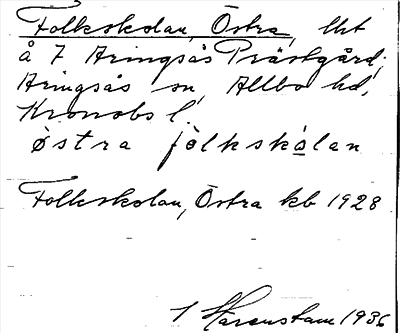 Folkskolan, Östra, lht
å 7 Aringsås Prästgård,
Aringsås sn, Allbo hd,
Kronobs l.
östra fòlkskolan
Folkskolan, Östra kb 1928
1936